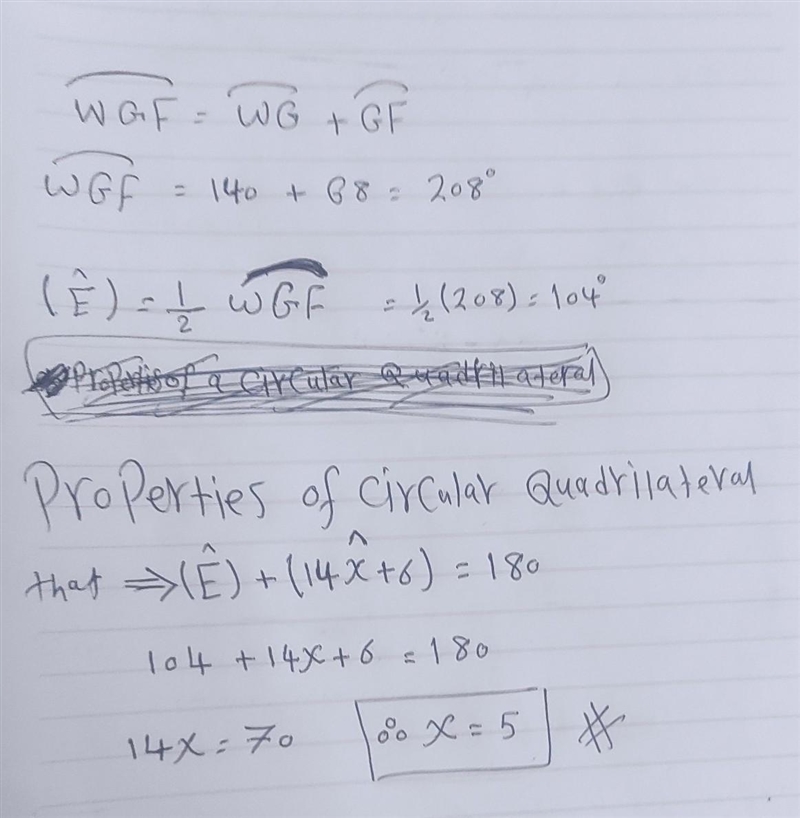 WGF = WG + GF
WGF = 140 + 68 = 208°
(Ê) = 1/2 WGF = 1/2 (208) = 104°
Properties of a Circular Quadrilateral
Properties of Circular Quadrilateral
that ⇒ (Ê) + (14x̂+6) = 180
104 + 14x + 6 = 180
14x = 70 ∴ x = 5 #